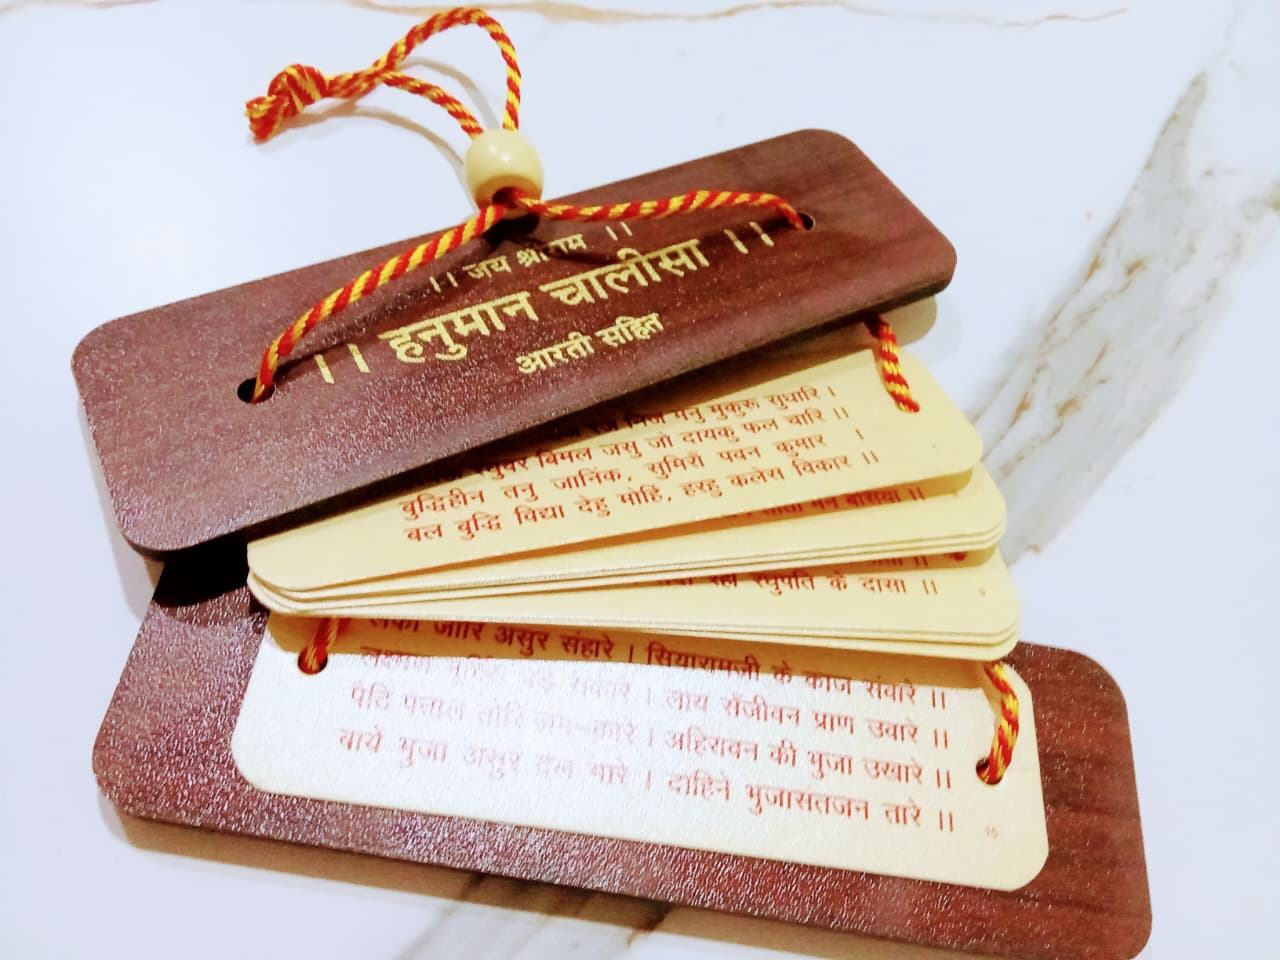 ।। जय श्रीराम ।।
।। हनुमान चालीसा ।।
आरती सहित
निज मनु मुकुरू सुधारि ।
बिमल जसु जो दायकु फल चारि ।।
बुद्धिहीन तनु जानिक, सुमिरौं पवन कुमार ।
बल बुद्धि विद्या देहु मोहिं, हरहु कलेस विकार ।।
मन बसिया ।।
रहो रघुपति के दासा ।।
9
लंका जारि असुर संहारे । सियारामजी के काज संवारे ।।
। लाय सँजीवन प्राण उबारे ।।
पैठि पताल तोरि जम-कारे । अहिरावन की भुजा उखारे ।।
बायें भुजा असुर दल मारे । दाहिने भुजासतजन तारे ।।
15